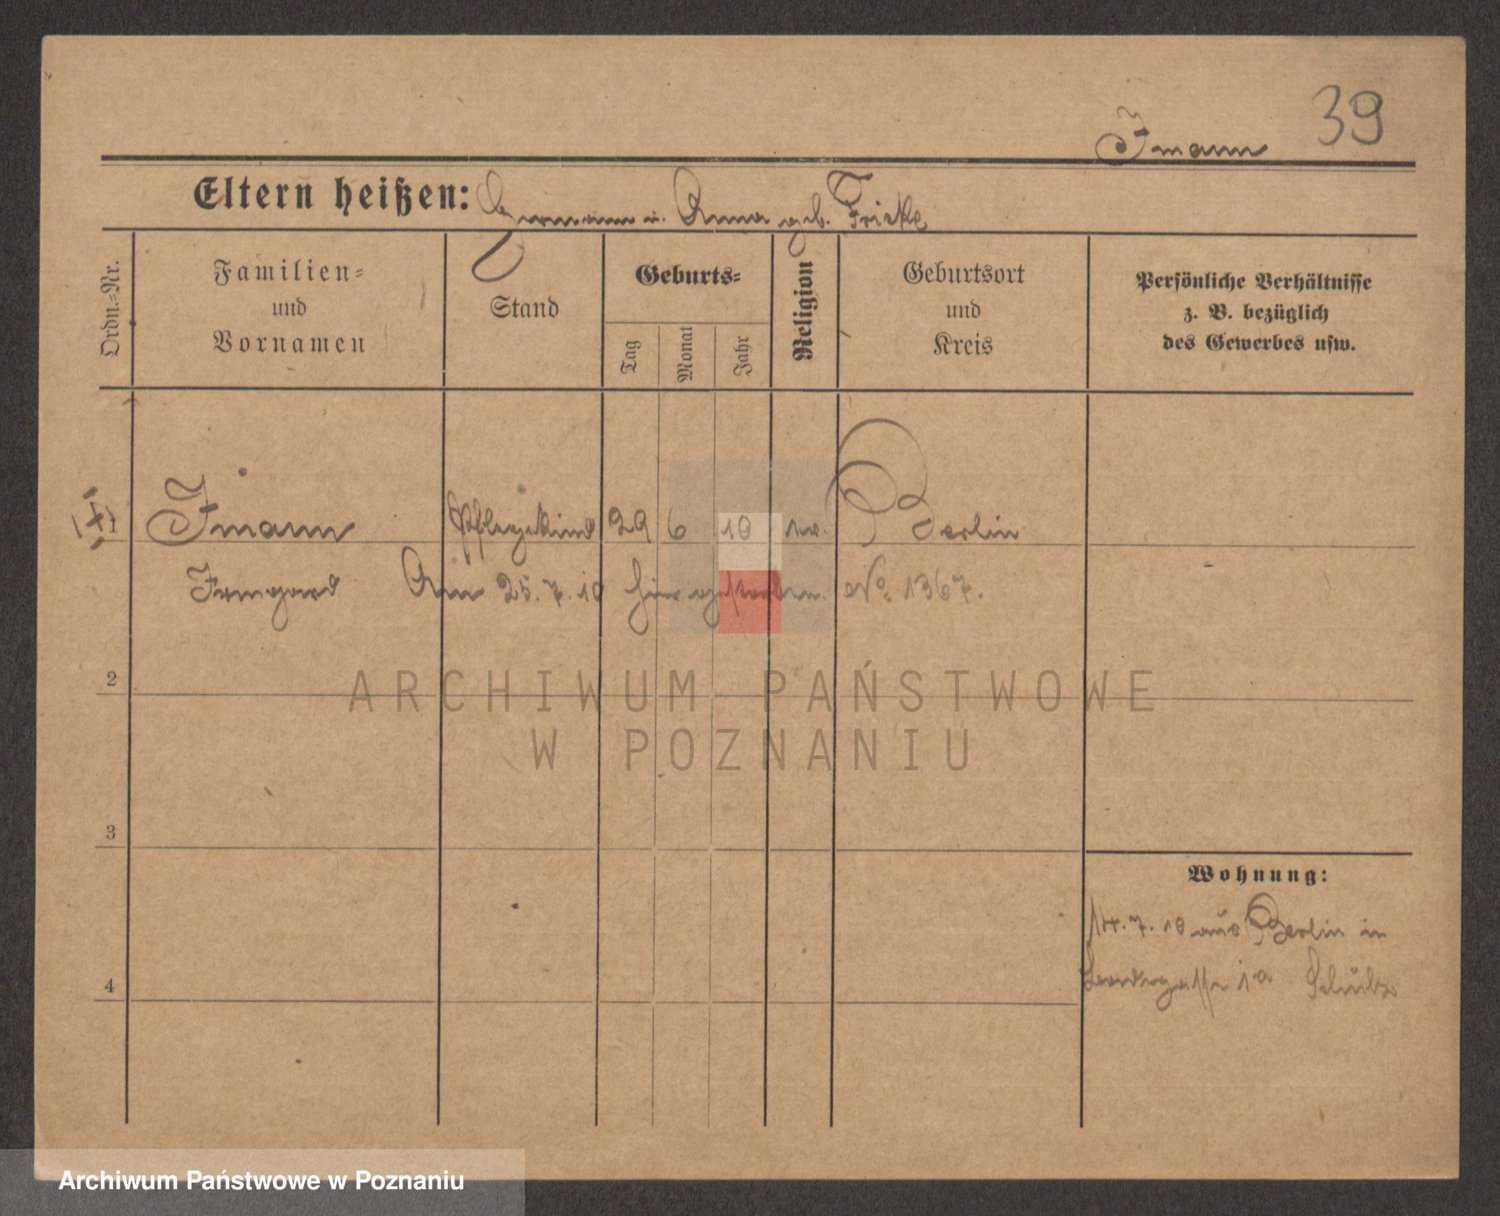 39
Imann
Eltern heißen: Hermann u. Anna geb. Fricke
Ordn.=Nr.
Familien=
und
Vornamen
Stand
Geburts=
Tag
Monat
Jahr
Religion
Geburtsort
und
Kreis
Persönliche Verhältnisse
z. B. bezüglich
des Gewerbes usw.
1 Imann Pflegekind 29 6 10 ev. Berlin
Irmgard Am 25.7.10 hier gestorben. No. 1367.
2
ARCHIWUM PAŃSTWOWE
W POZNANIU
3
Wohnung:
14.7.10 aus Berlin in
4
1a Schulz
Archiwum Państwowe w Poznaniu